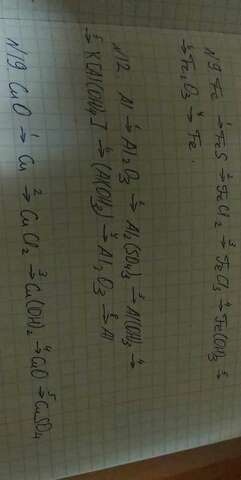 N9 Fe →¹ FeS →² FeCl₂ →³ FeCl₃ →⁴ Fe(OH)₃ →⁵
→⁵ Fe₂O₃ →⁶ Fe.
N12. Al →¹ Al₂O₃ →² Al₂(SO₄)₃ →³ Al(OH)₃ →⁴
→⁵ K[Al(OH)₄] →⁶ (Al(OH)₃) →⁴ Al₂O₃ →⁸ Al
N19. CuO →¹ Cu →² CuCl₂ →³ Cu(OH)₂ →⁴ CuO →⁵ CuSO₄